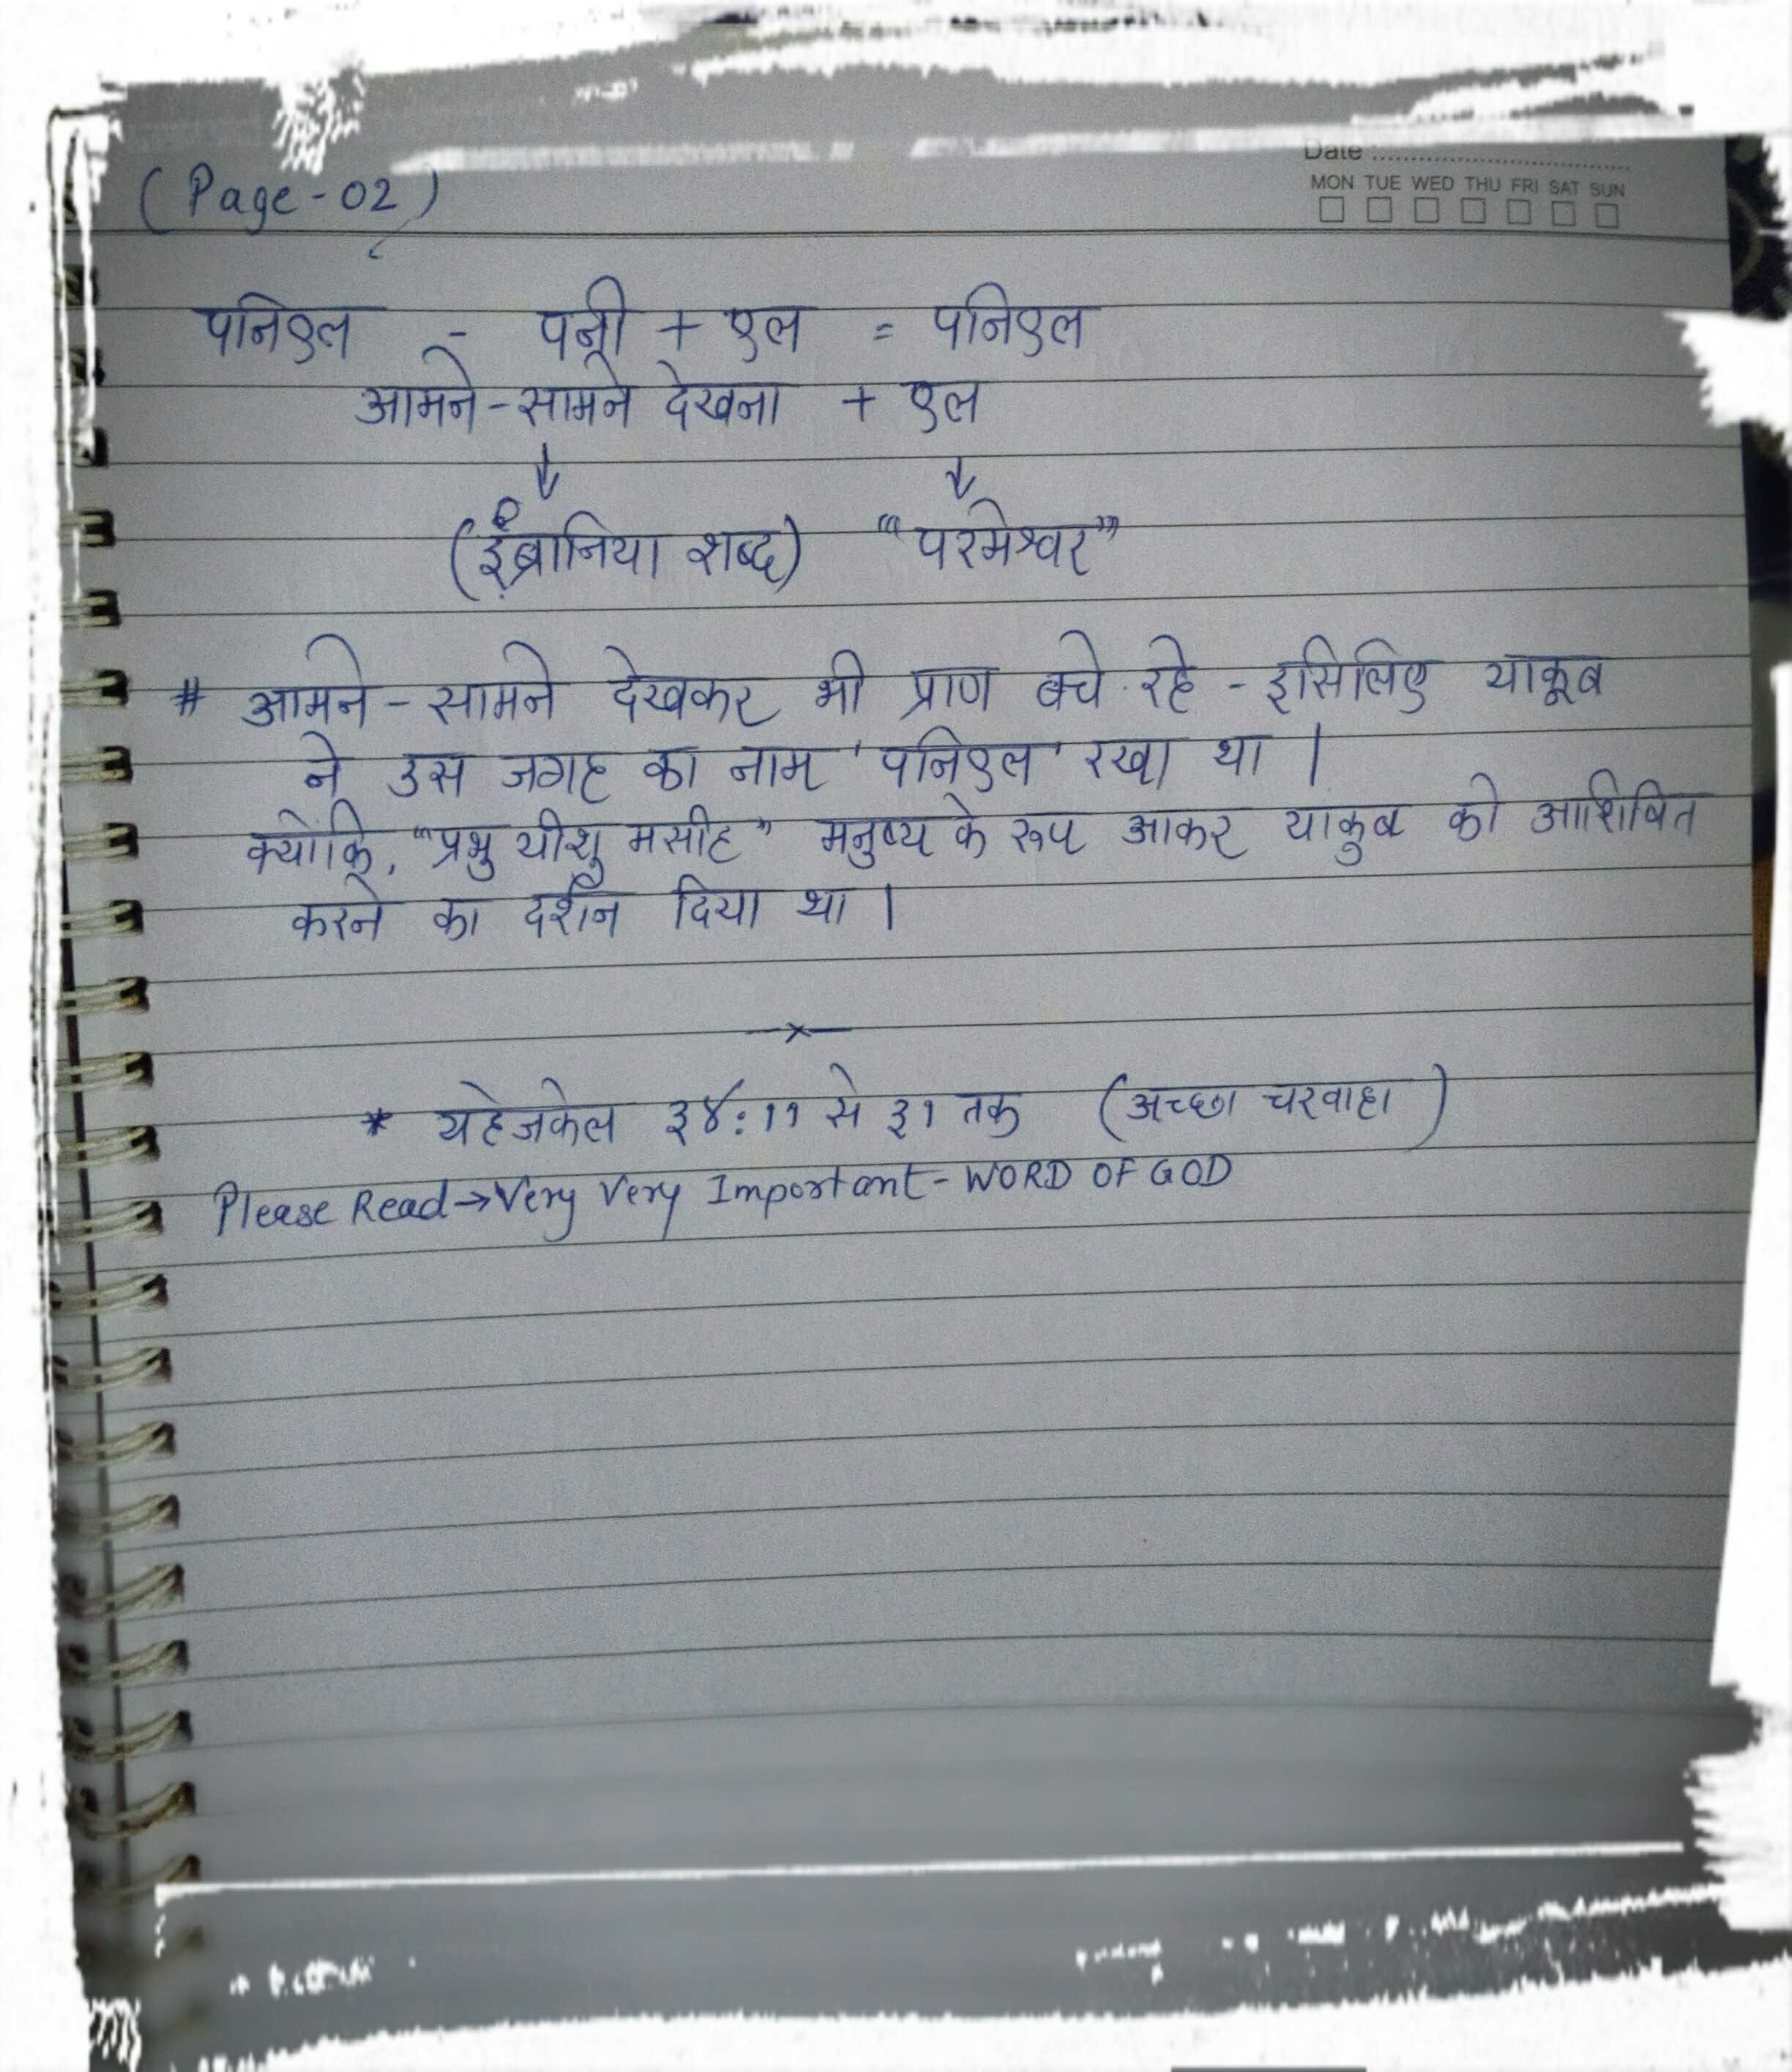 Date
MON TUE WED THU FRI SAT SUN
(Page-02)
पनिएल - पनी + एल = पनिएल
आमने-सामने देखना + एल
(इब्रानिया शब्द) "परमेश्वर"
# आमने-सामने देखकर भी प्राण बचे रहे - इसिलिए याकूब
ने उस जगह का नाम 'पनिएल' रखा था |
क्योंकि, "प्रभु यीशु मसीह" मनुष्य के रूप आकर याकुब को आशिषित
करने का दर्शन दिया था |
* यहेजकेल ३४:११ से ३१ तक (अच्छा चरवाहा)
Please Read→Very Very Important-WORD OF GOD